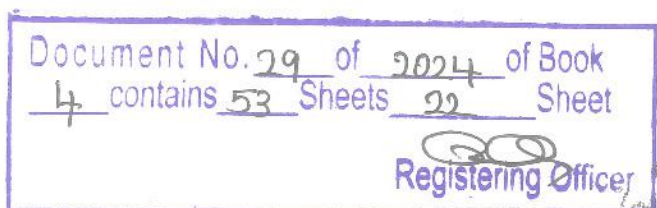 Document No. 29 of 2024 of Book
4 contains 53 Sheets 22 Sheet
Registering Officer